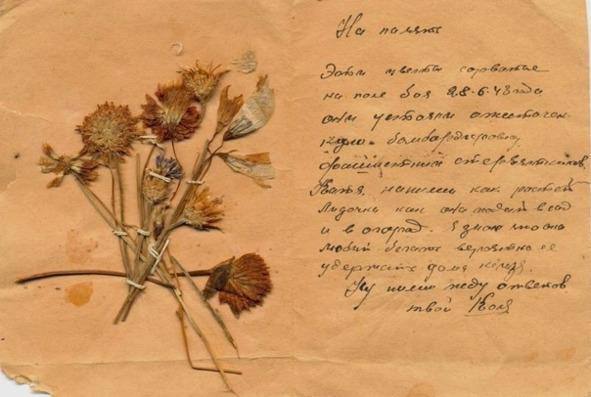 На память
Эти цветы сорватые
на поле боя 28.6.43 года
они устояли ожесточен-
ную бомбардировку
фашистких стервятников.
Валя, напиши как растет
Лидочка как она ходит в сад
и в огород. Я знаю что она
любит бегать вероятно ее
удержать дома нельзя.
Ну пиши жду ответов.
твой Коля